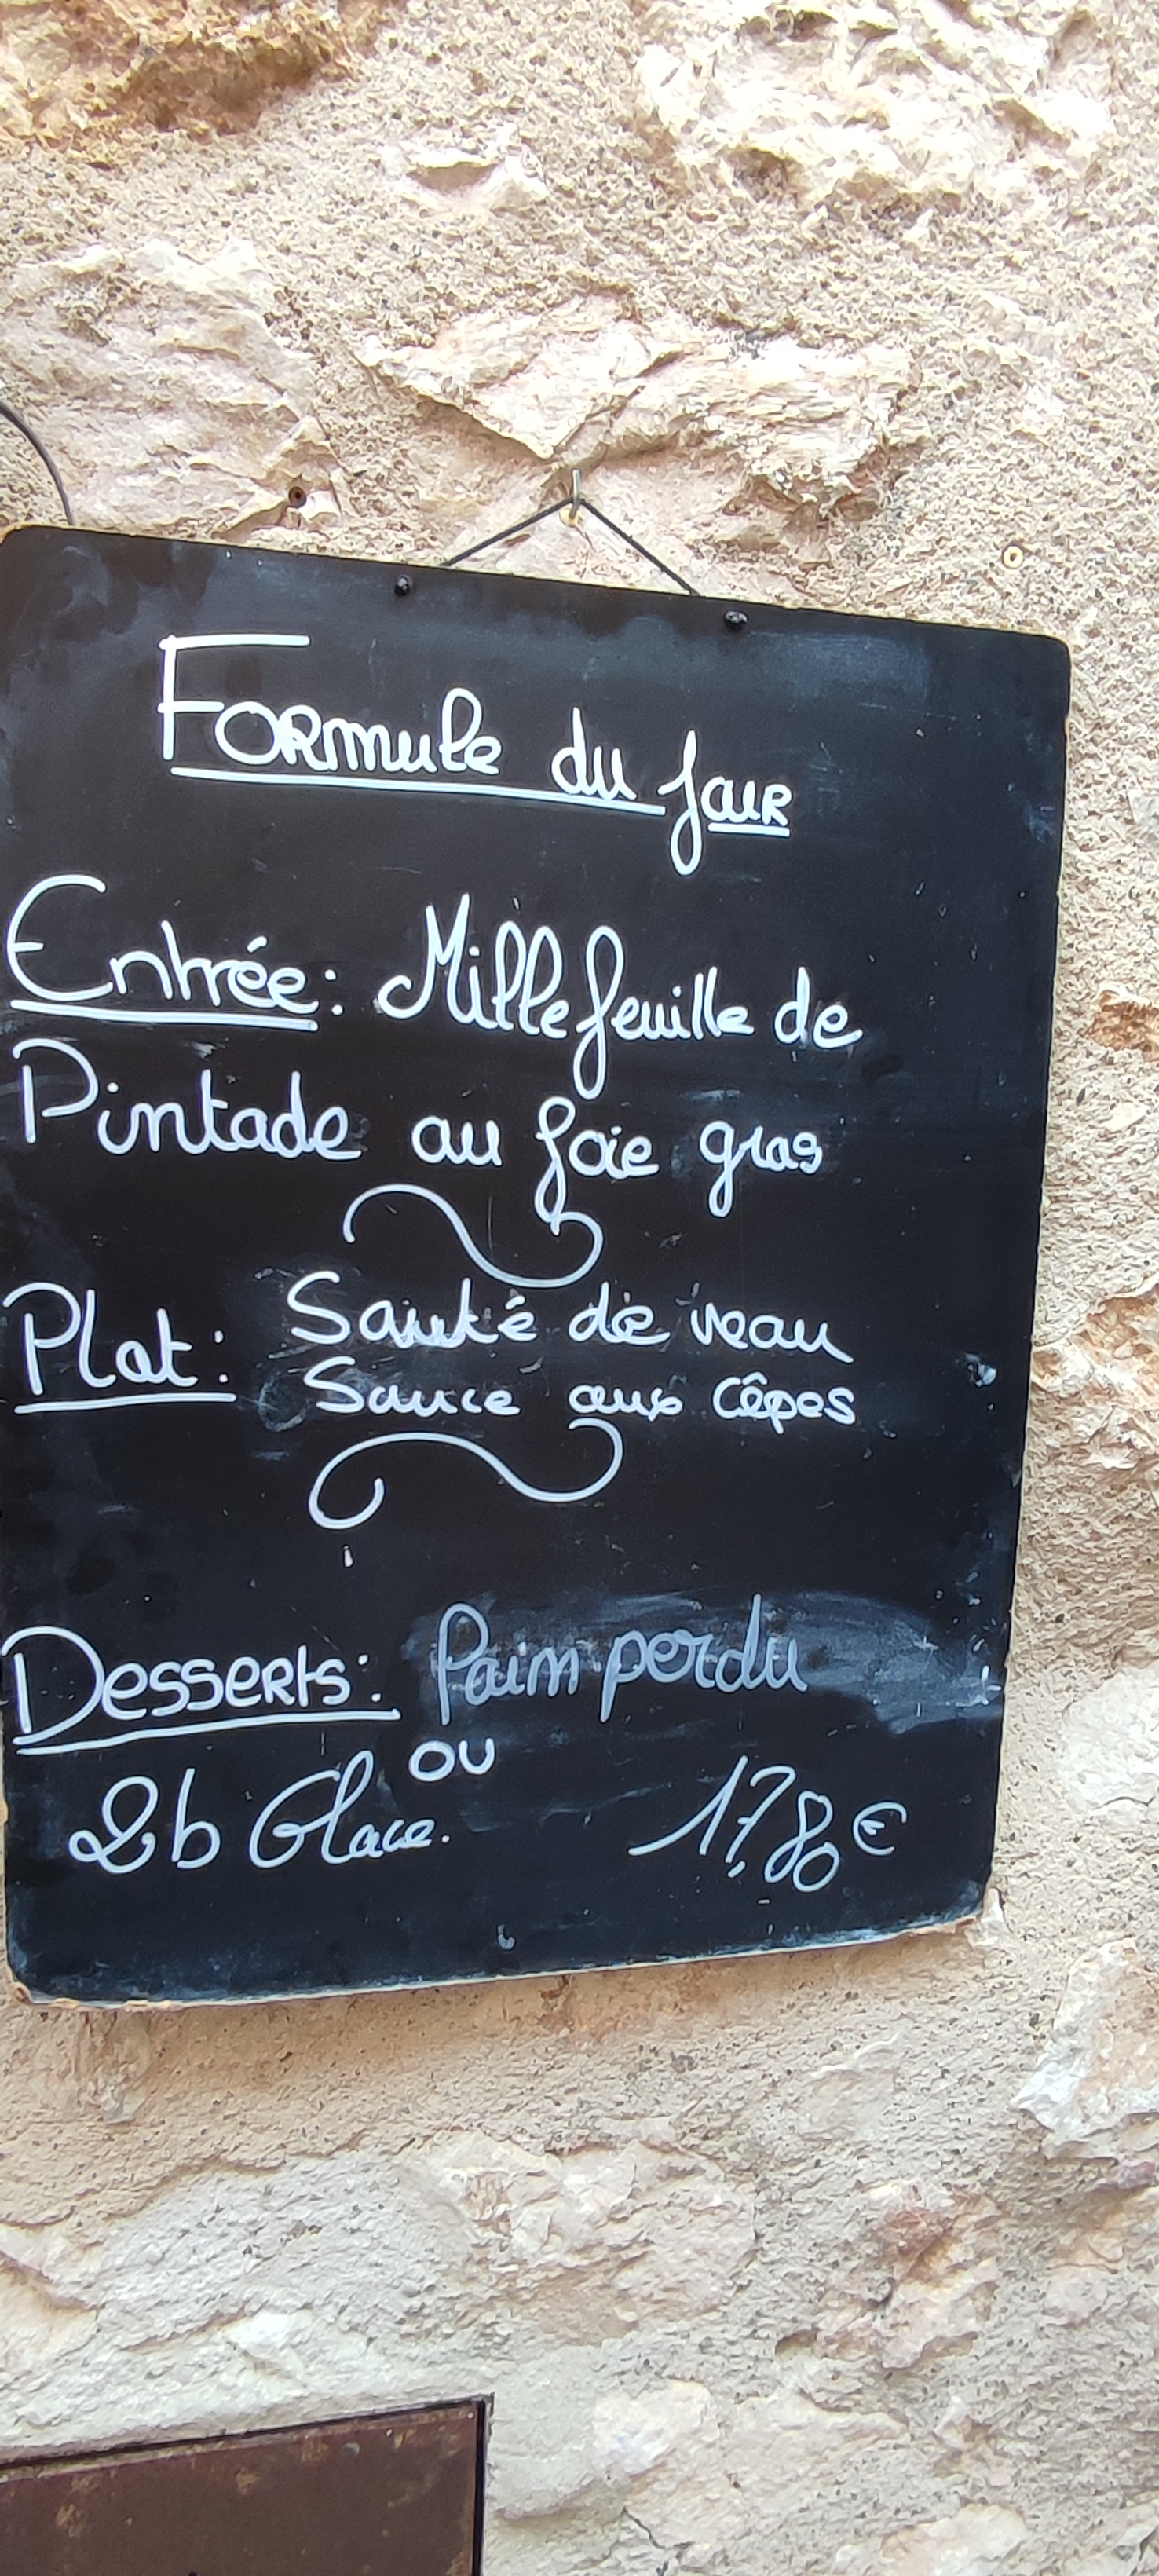 Formule du jour
Entrée: Millefeuille de
Pintade au foie gras
Plat: Sauté de veau
Sauce aux cêpes
Desserts: Pain perdu
ou
2b Glace.
17,80€